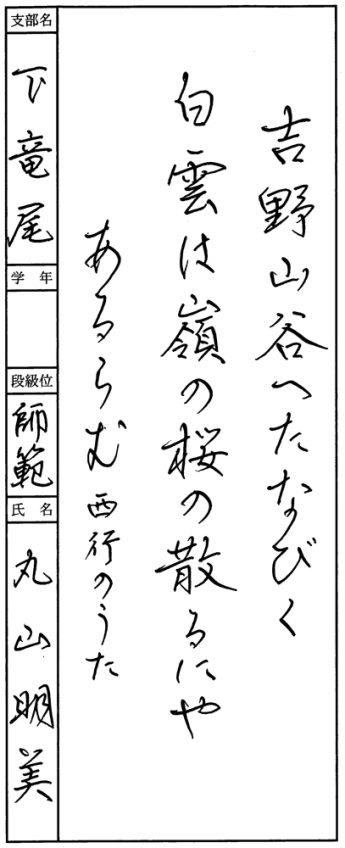 吉野山谷へたなびく
白雲は嶺の桜の散るにや
あるらむ 西行のうた
支部名
下竜尾
学年
段級位
師範
氏名
丸山明美